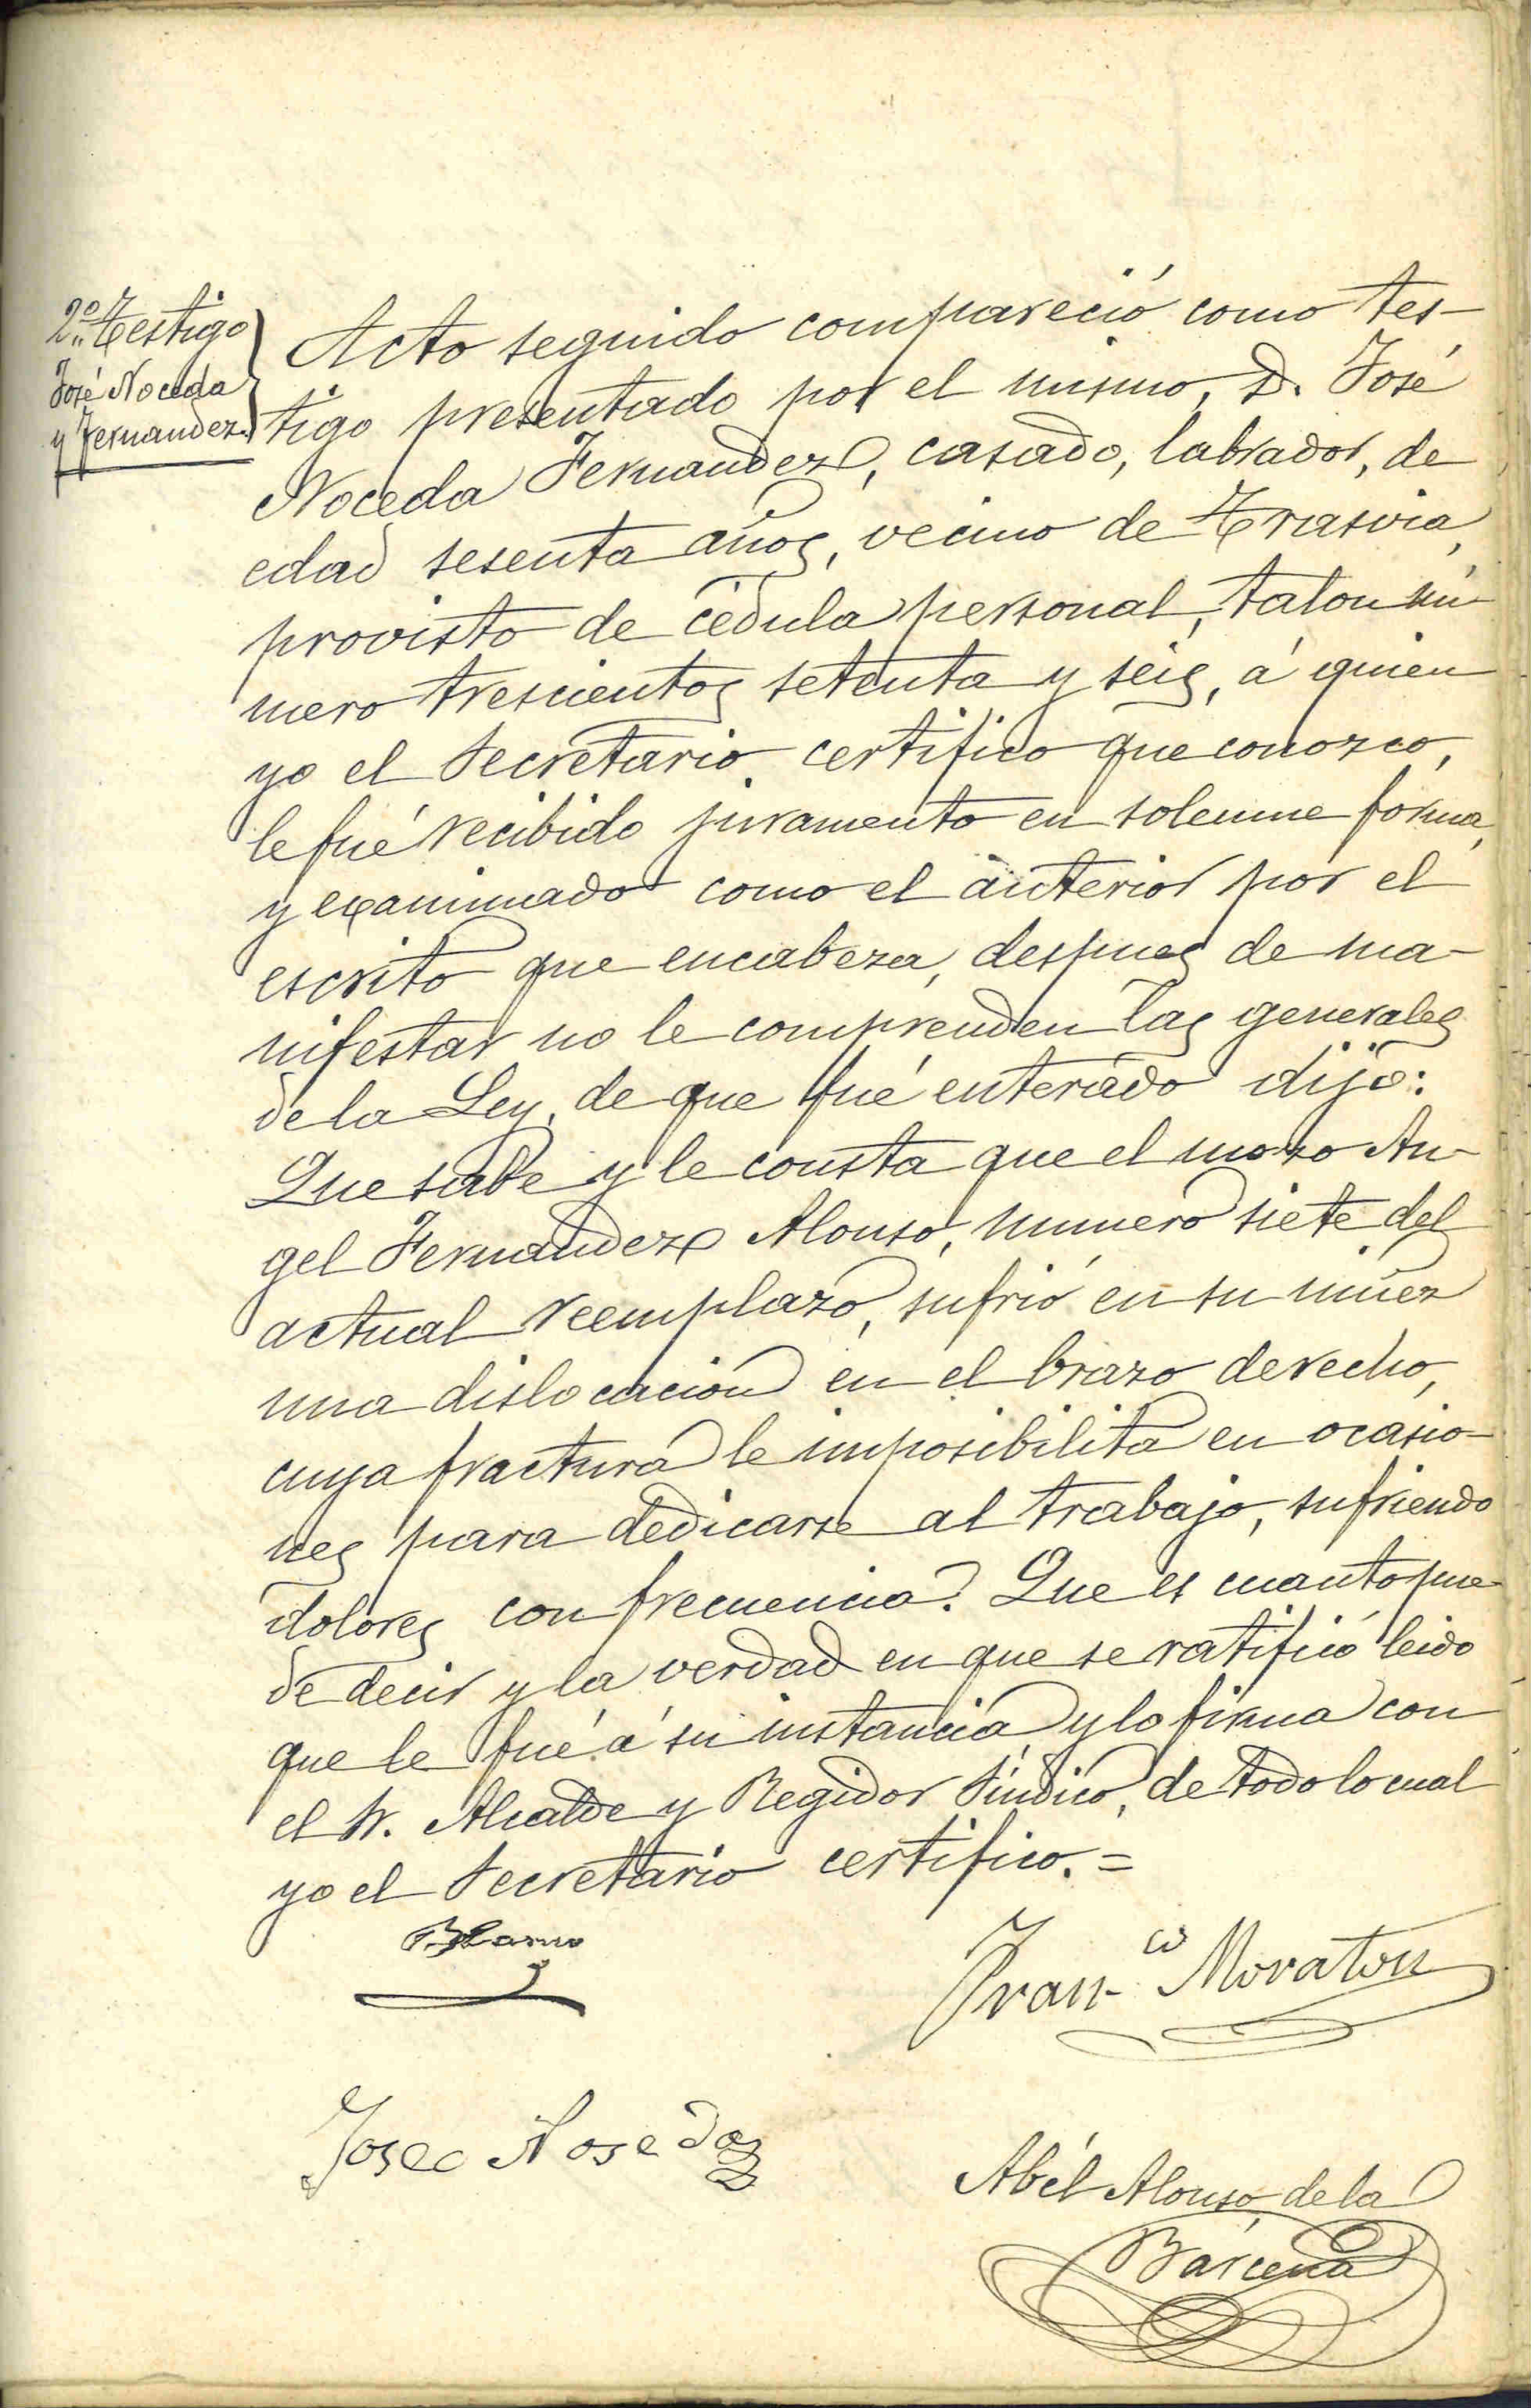 2º Testigo
José Noceda
y Fernandez.
Acto seguido compareció como tes-
tigo presentado por el mismo, D. José
Noceda Fernandez, casado, labrador, de
edad sesenta años, vecino de Trasvia,
provisto de cédula personal, talon nú-
mero trescientos setenta y seis, á quien
yo el Secretario certifico que conozco,
le fué recibido juramento en solemne forma,
y examinado como el anterior por el
escrito que encabeza, despues de ma-
nifestar no le comprenden las generales
de la Ley, de que fué enterado dijo:
Que sabe y le consta que el mozo An-
gel Fernandez Alonso, numero siete del
actual reemplazo, sufrió en su niñez
una dislocacion en el brazo derecho,
cuya fractura le imposibilita en ocasio-
nes para dedicarse al trabajo, sufriendo
dolores con frecuencia. Que es cuanto pue-
de decir y la verdad en que se ratificó leido
que le fué á su instancia y lo firma con
el Sr. Alcalde y Regidor Síndico, de todo lo cual
yo el Secretario certifico. =
Franco Moraton
Josec Noseda
Abél Alonso de la
Bárcena